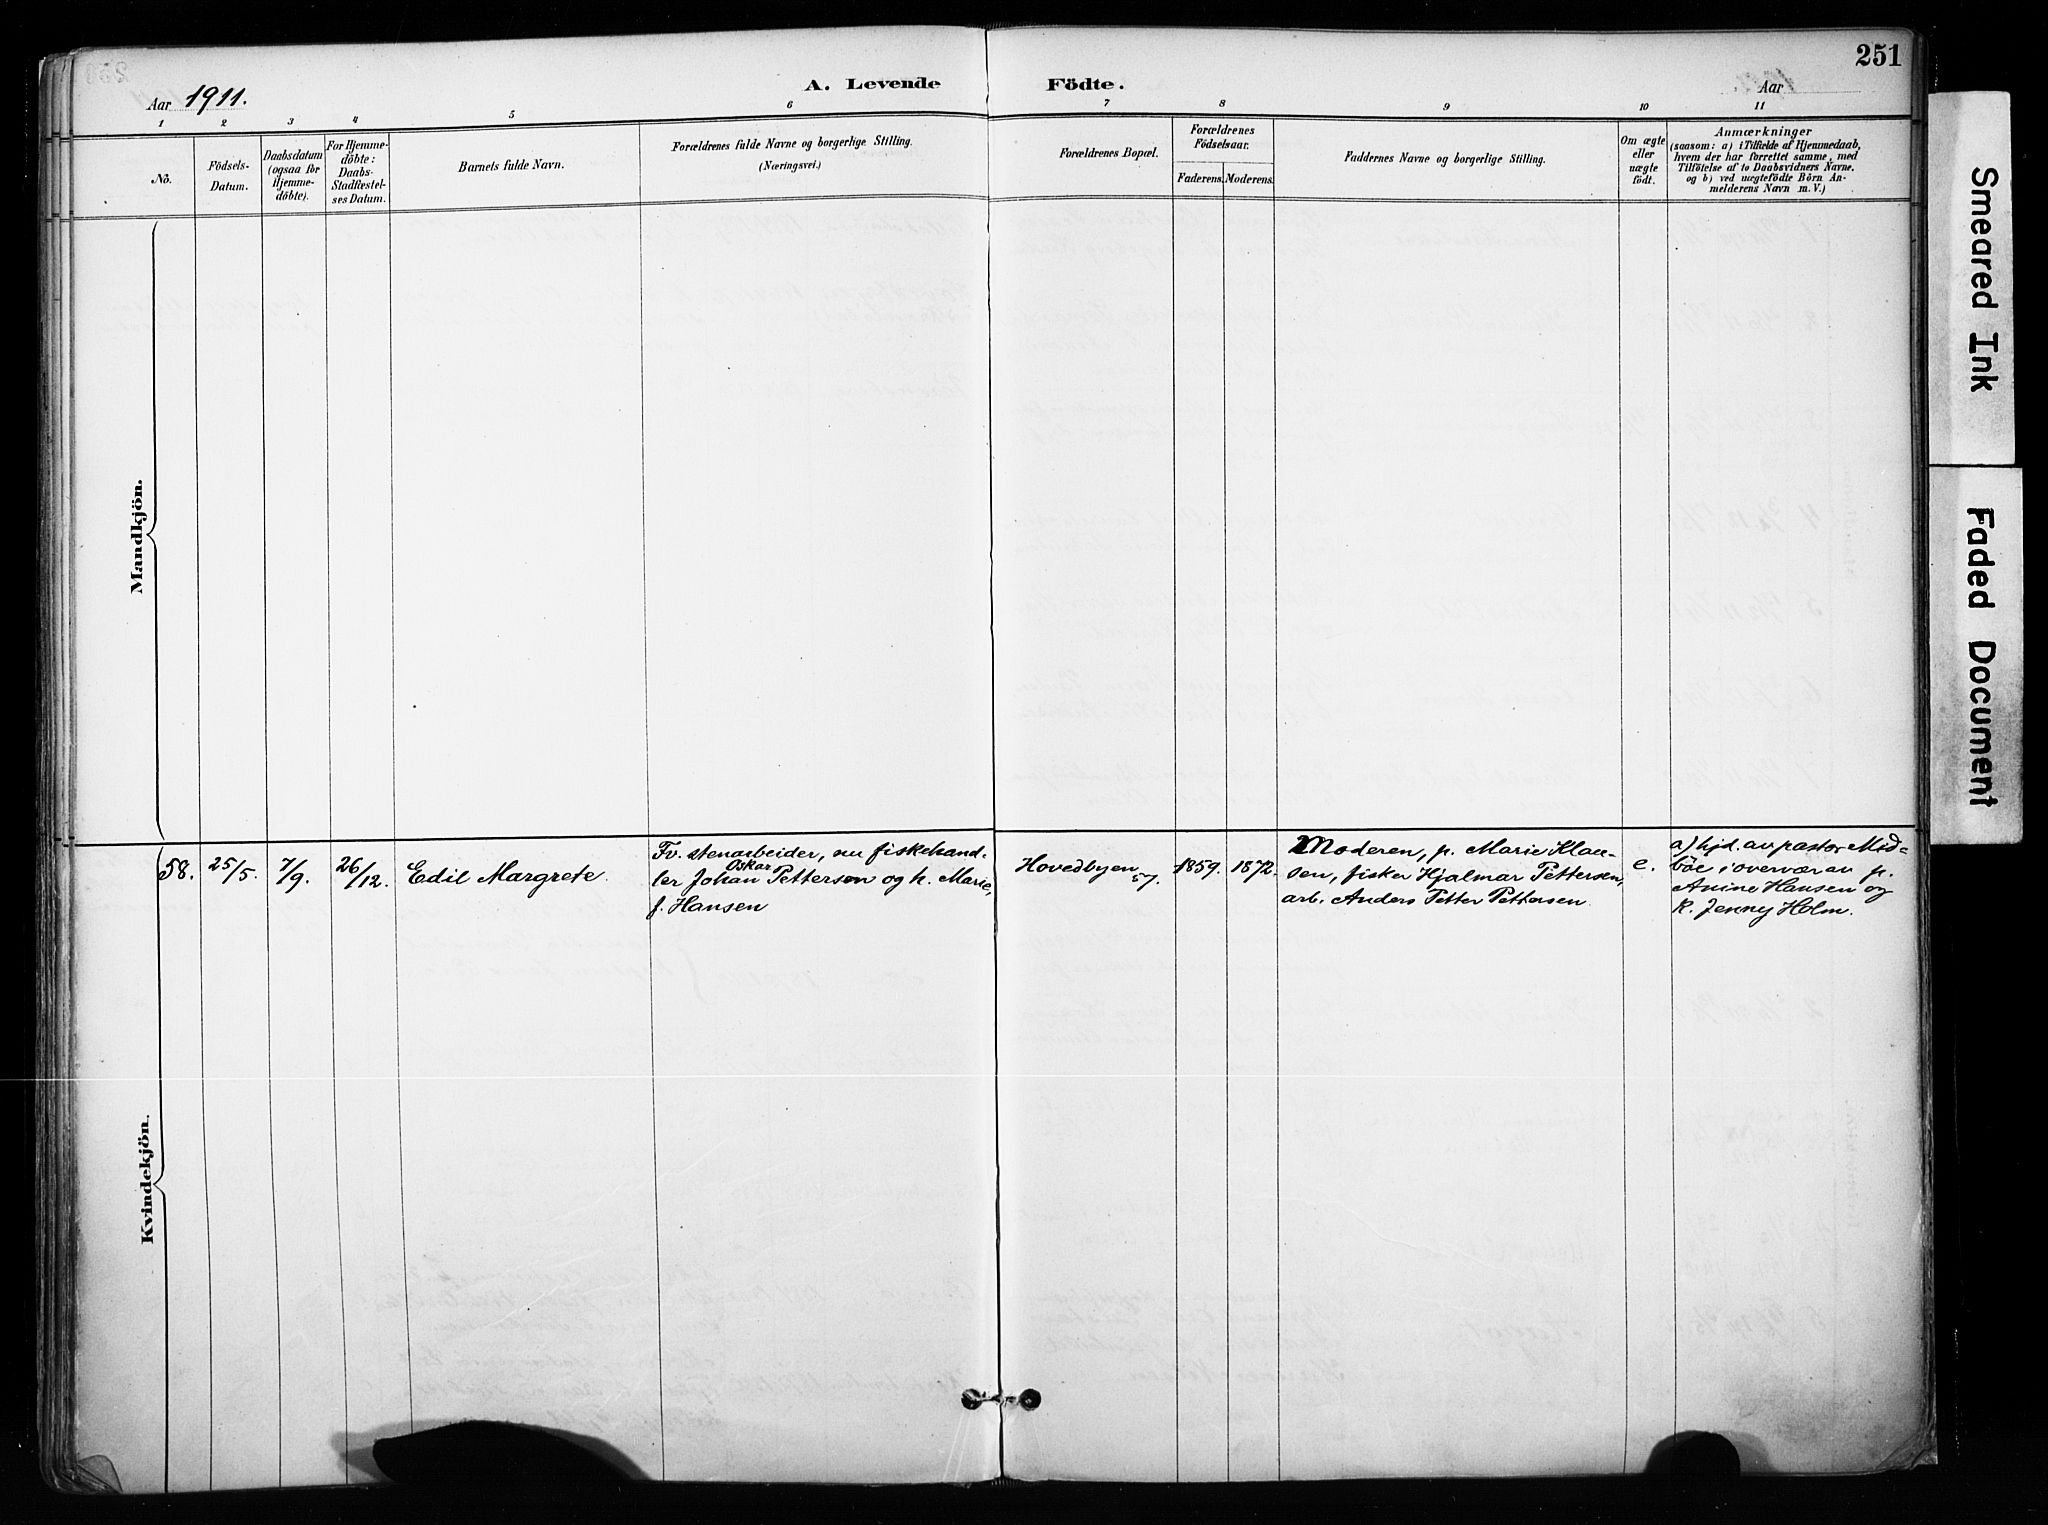 251
Aar 1911.
A. Levende Födte.
Aar
1 2 3 4 5 6 7 8 9 10 11
No.
Födsels-
Datum.
Daabsdatum
(ogsaa for
Hjemme-
döbte).
For Hjemme-
döbte:
Daabs-
Stadfæstel-
ses Datum.
Barnets fulde Navn.
Forældrenes fulde Navne og borgerlige Stilling.
(Næringsvei.)
Forældrenes Bopæl.
Forældrenes
Födselsaar.
Faderens. Moderens.
Faddernes Navne og borgerlige Stilling.
Om ægte
eller
uægte
födt.
Anmærkninger
(saasom: a) i Tilfælde af Hjemmedaab,
hvem der har forrettet samme, med
Tilföielse af to Daabsvidners Navne.
og b) ved uægtefödte Börn An-
melderens Navn m. V.)
Mandkjön.
Kvindekjön.
58.
25/5.
7/9.
26/12.
Edil Margrete.
Fv. stenarbeider, nu fiskehand-
ler Johan Oskar Pettersen og h. Marie,
f. Hansen
Hovedbyen
57.
1859.
1872.
Moderen, p. Marie Klau-
sen, fisker Hjalmar Pettersen,
arb. Anders Petter Pettersen.
e.
a) hjd. av pastor Mid-
böe i overvær av p.
Anine Hansen og
k. Jenny Holm.
Smeared Ink
Faded Document